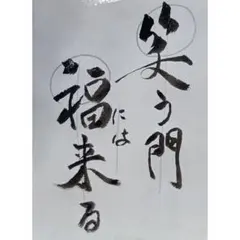 笑う門
には
福来る